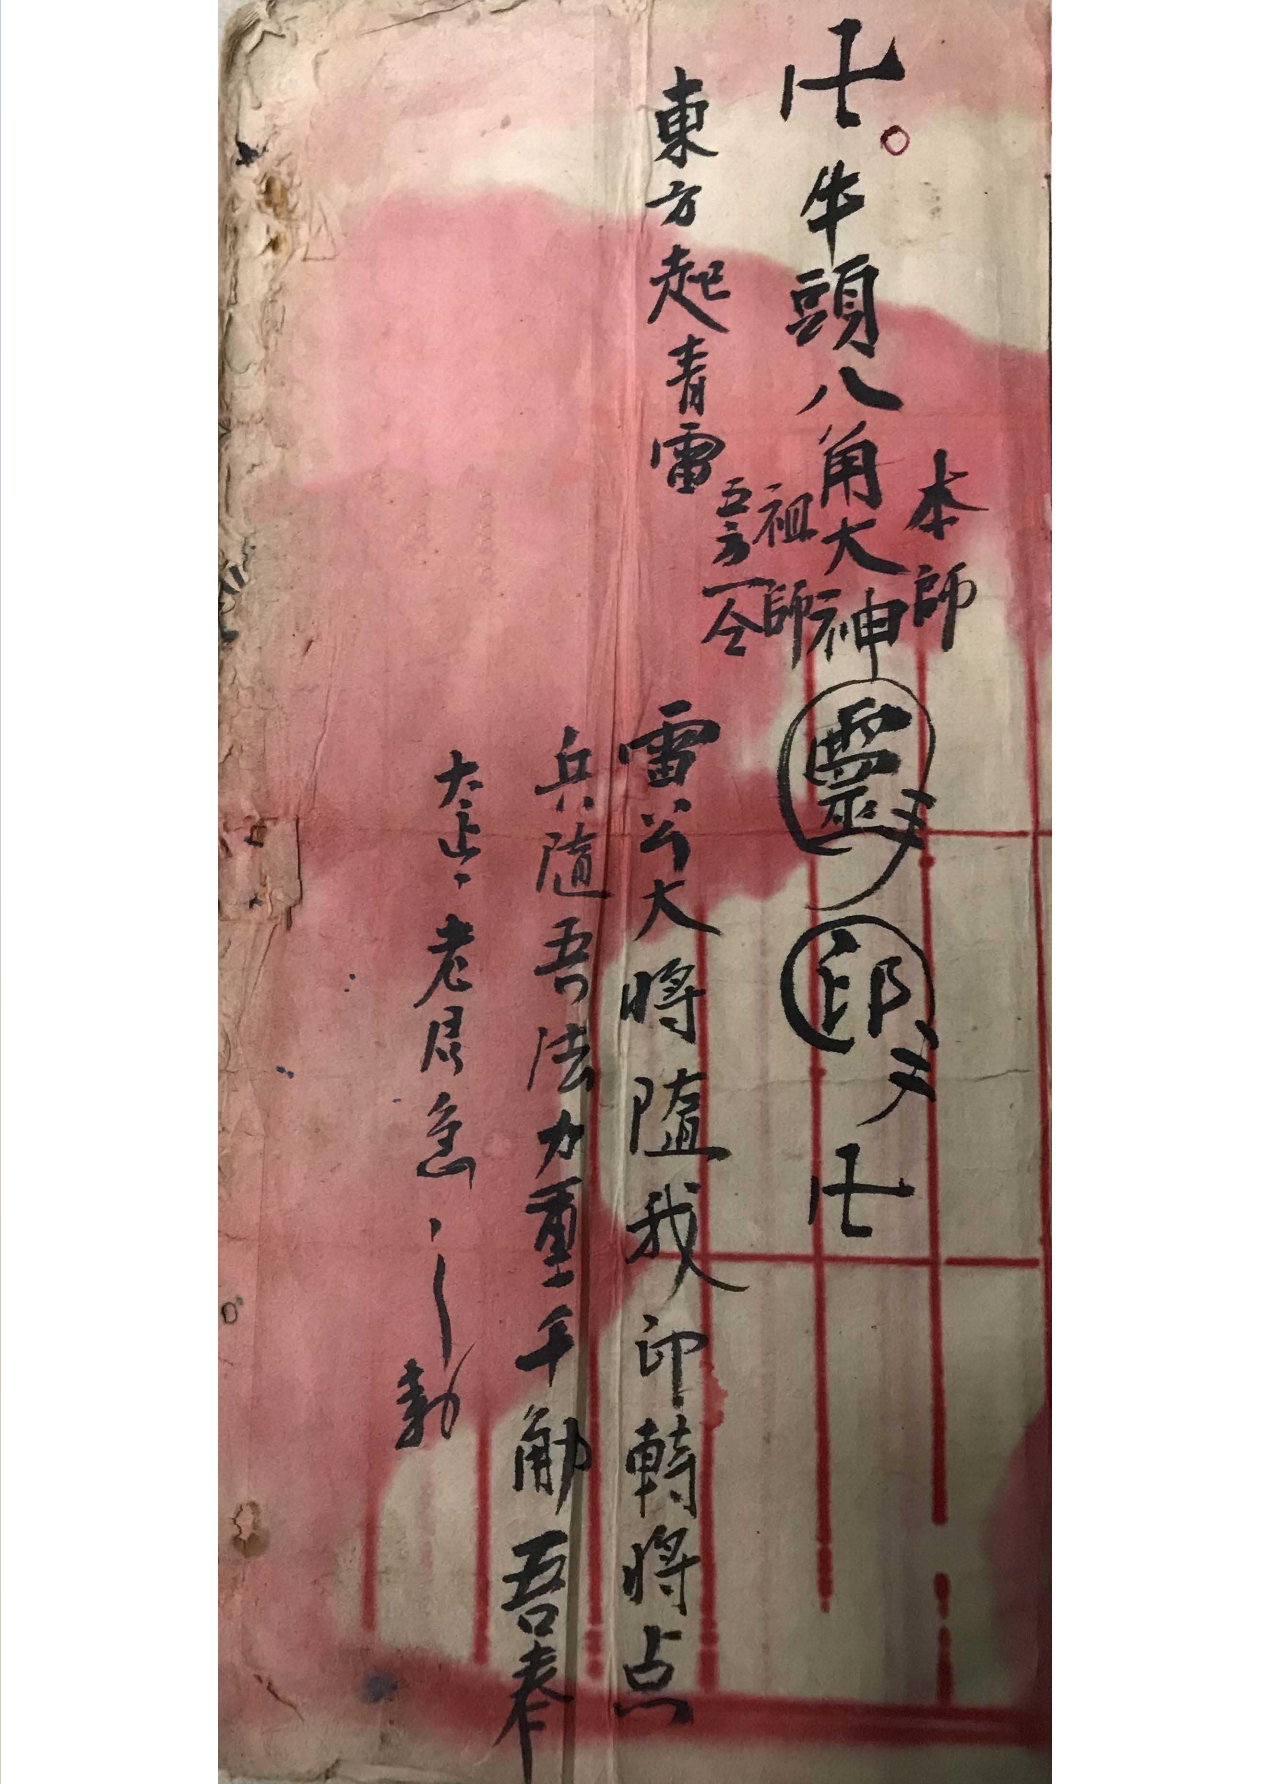 卍
本師
牛頭八角大神靈印卍
祖師
五方一仝
東方起青雷
雷公大將隨我印轉將点
兵隨吾法力重千觔吾奉
太上老君急
勅